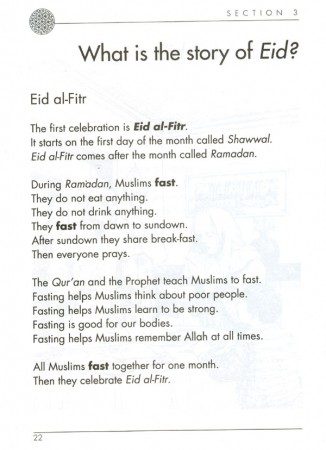 SECTION 3
What is the story of Eid?
Eid al-Fitr
The first celebration is Eid al-Fitr.
It starts on the first day of the month called Shawwal.
Eid al-Fitr comes after the month called Ramadan.
During Ramadan, Muslims fast.
They do not eat anything.
They do not drink anything.
They fast from dawn to sundown.
After sundown they share break-fast.
Then everyone prays.
The Qur'an and the Prophet teach Muslims to fast.
Fasting helps Muslims think about poor people.
Fasting helps Muslims learn to be strong.
Fasting is good for our bodies.
Fasting helps Muslims remember Allah at all times.
All Muslims fast together for one month.
Then they celebrate Eid al-Fitr.
22